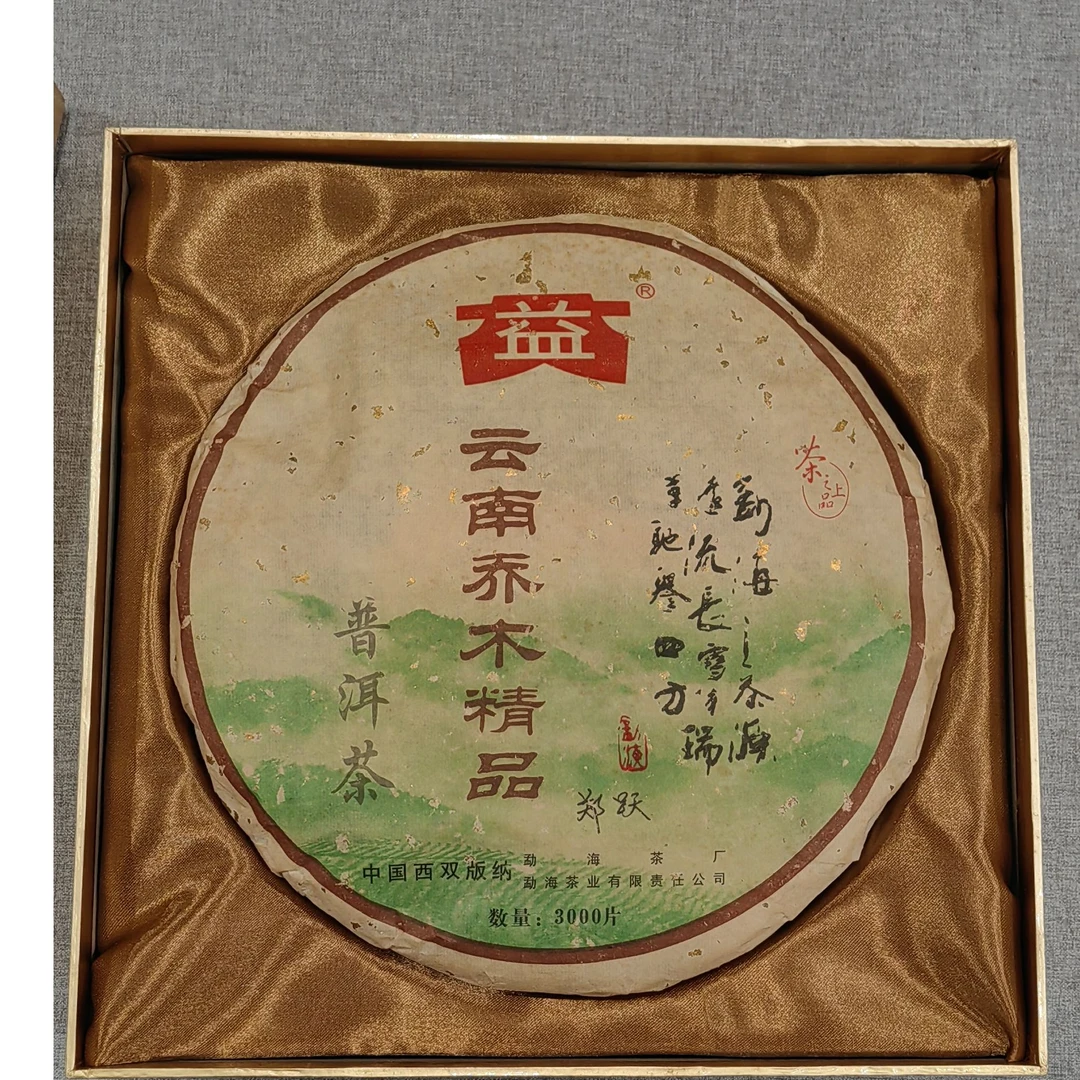 益®
云南乔木精品
普洱茶
茶之上品
勐海之茶源
遠流長雪瑞
草馳譽四方
郑跃
中国西双版纳
勐海茶厂
勐海茶业有限责任公司
数量：3000片